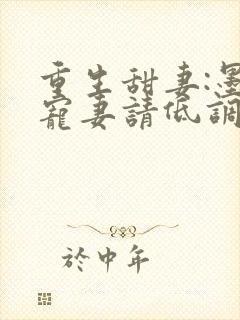 重生甜妻:墨
寵妻請低調
於中年